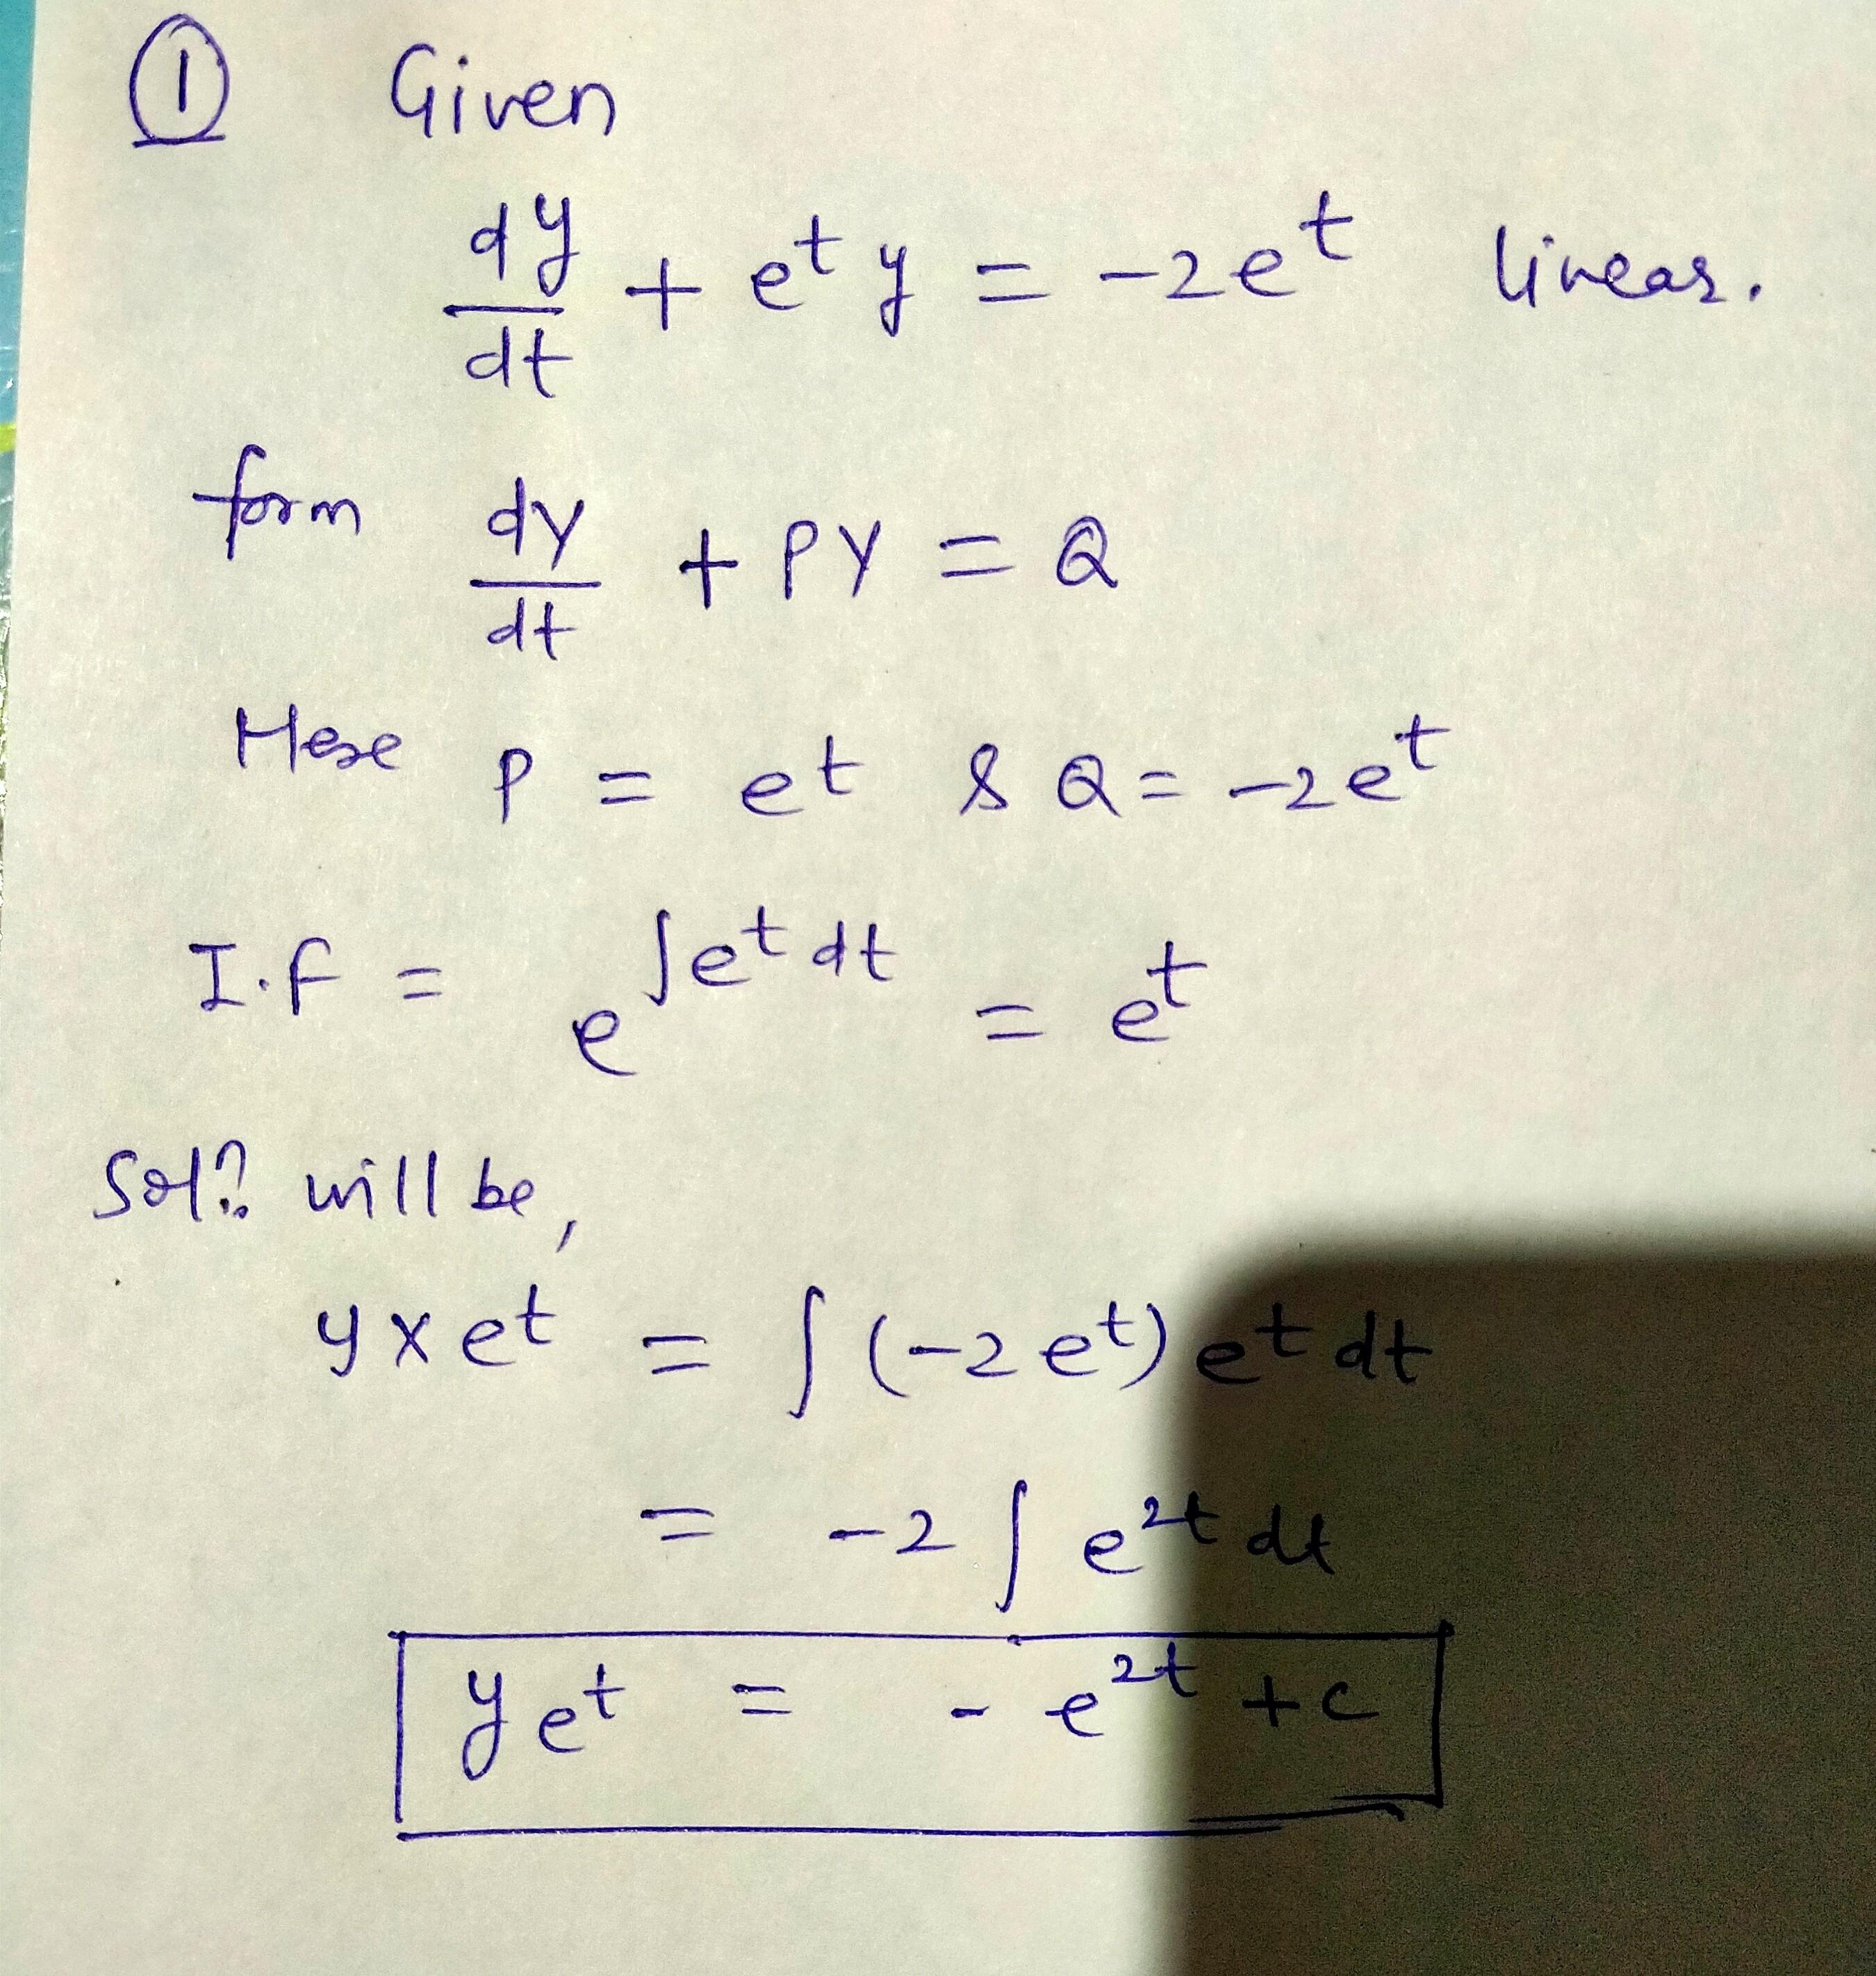 ① Given
dy/dt + e^t y = -2e^t linear.
form dy/dt + PY = Q
Here P = e^t & Q = -2e^t
I.F = e^∫e^t dt = e^t
Sol? will be,
y x e^t = ∫(-2e^t) e^t dt
= -2 ∫ e^2t dt
ye^t = - e^2t + c